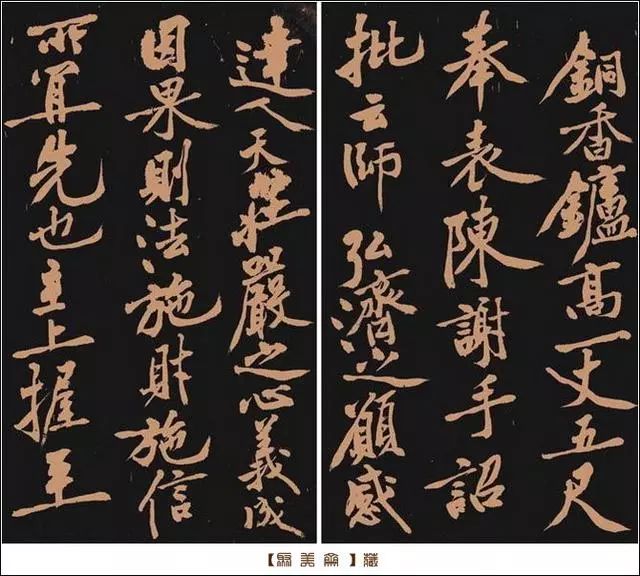 銅香鑪高一丈五尺
奉表陳謝手詔
批云師弘濟之願感
達人天莊嚴之心義成
因果則法施財施信
所宜先也主上握至
【美】藏